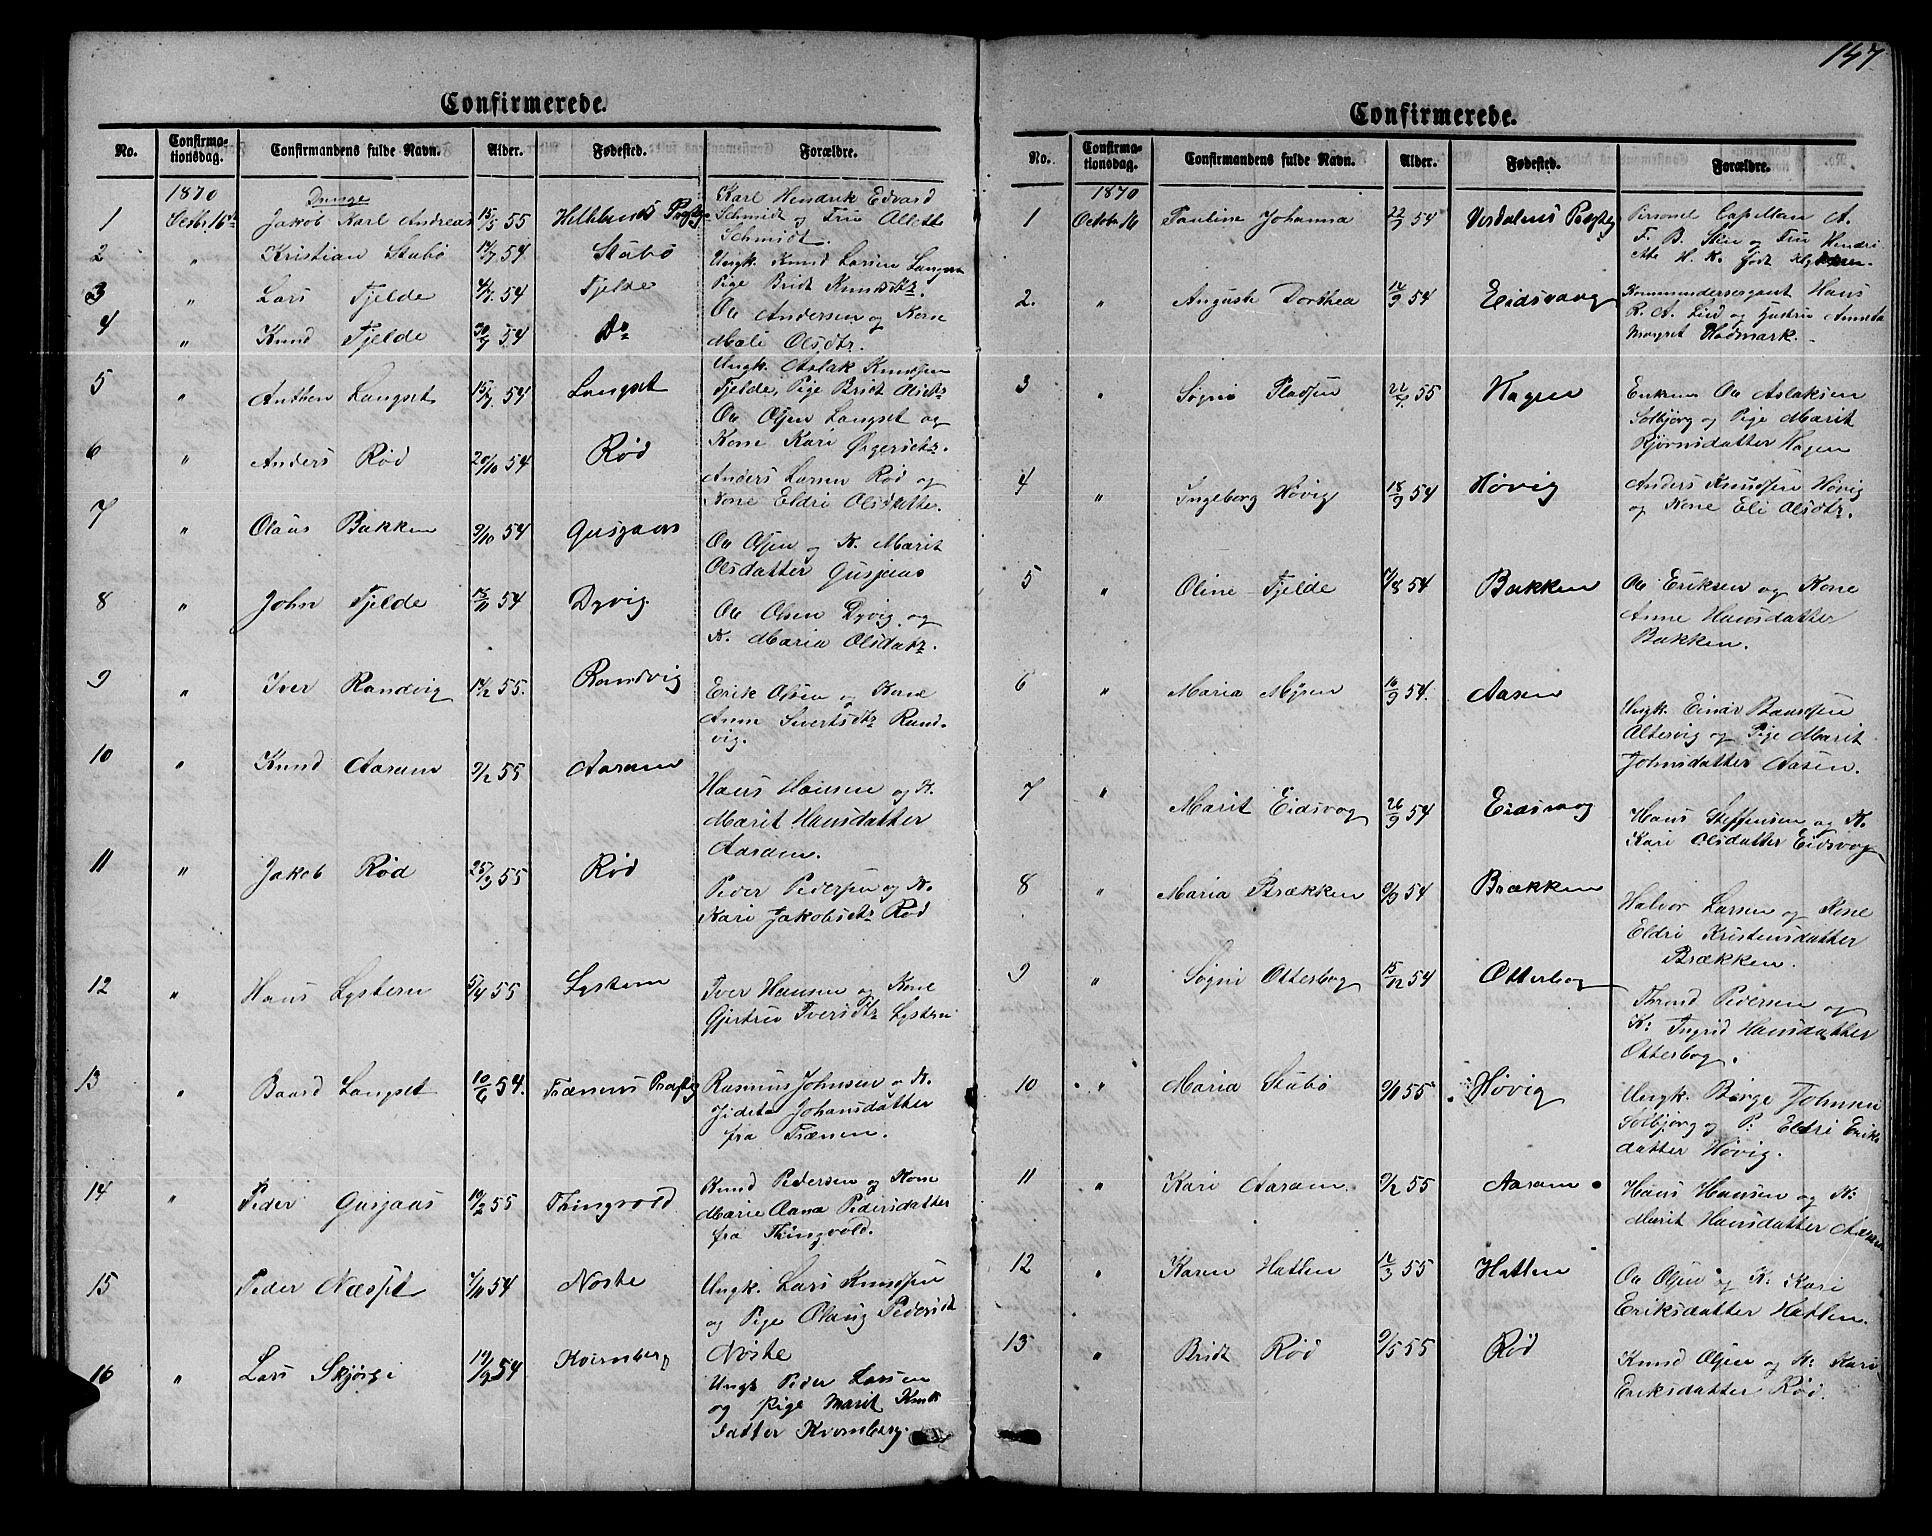 147
Confirmerede.
No. Confirma-tionsdag. Confirmandens fulde Navn. Alder. Fødested. Forældre.
1870 Drenge
1 Octbr. 16de Jakob Karl Andreas 15/5 55 Karl Hendrik Edvard
Schmidt og Fru Alette
Schmidt.
2 " Kristian Stubø 54 Stubø Ungk. Knud Larsen Langset
Pige Bridt Knudsdtr.
3 " Lars Fjelde 4/7 54 Fjelde Ole Andersen og Kone
Mali Olsdtr.
4 " Knud Fjelde 30/7 54 Do Ungk. Aslak Knudsen
Fjelde, Pige Bridt Olsdtr
5 " Anthon Langset 15/7 54 Langset Ole Olsen Langset og
Kone Kari
6 " Anders Rød 20/10 54 Rød Anders Larsen Rød og
Kone Eldri Olsdatter.
7 " Olaus Bakken 9/10 54 Gusjaas Ole Olsen og K. Marit
Olsdatter Gusjaas
8 " John Fjelde 15/11 54 Dyvig Ole Olsen Dyvig og
K. Maria Olsdatr.
9 " Iver Randvig 55. Randvig Erik Olsen og Kone
Anne Sivertsdtr Rand-
vig.
10 " Knud Aaram 9/2 55 Aaram Hans Hansen og K.
Marit Hansdatter
Aaram.
11 " Jakob Rød 25/3 55 Rød Peder Pedersen og K.
Kari Jakobsdtr Rød
12 " Hans Lystern 5/4 55 Iver Hansen og Kone
Gjertrud Iversdtr
13 " Baard Langset 10/6 54. Rasmus Johnsen o K.
Johansdatter
fra
14 " Peder Gusjaas 19/2 55 Thingvold Knud Pedersen og Kone
Marie Anna Pedersdatter
fra Thingvold.
15 Peder 54 Noste Ungk. Lars Knudsen
og Pige Olaug Pedersdt
Noste
16 " Lars Skjørsi 19/9 54 Kvernberg Ungk Peder Larsen
og Pige Marit Knuds
datter
Confirmerede.
No. Confirma-tionsdag. Confirmandens fulde Navn. Alder. Fødested. Forældre.
1870
1 Octobr. 16 Pauline Johanna 22/7 54 Verdalens Personel Capellan A.
F. B. og Fru Hendri
ette H. K. født
2. " Auguste Dorthea 12/9 54 Eidsvaag Kommandersergeant Hans
R. A. Lien og Hustru
Hodmark.
3 " Søgni Pladsen 55 Hagen Enkem Ole Aslaksen
Solbjørg og Pige Marit
Bjørnsdatter Hagen
4 " Ingeborg Høvig 18/9 54 Høvig Anders Knudsen Høvig
og Kone Eli Olsdtr.
5 " Oline Fjelde 54 Bakken Ole Eriksen og Kone
Anne Hansdatter
Bakken.
6 " Maria Myren 16/9 54. Aasen Ungk. Einar
og Pige Marit
Johnsdatter Aasen.
7 " Marit Eidsvog 26/9 54 Eidsvaag Hans Steffensen og K.
Kari Olsdatter Eidsvog
8 " Maria Brækken 54 Brækken Halvor Larsen og Kone
Eldri Kristensdatter
Brækken.
9 " Søgni Otterbog 15/12 54 Otterbog Thrond Pedersen og
K: Ingrid Hansdatter
Otterbog.
10 " Maria Stubø 55 Høvig Ungk. Børge Johnsen
Solbjørg og P: Eldri Eriks
datter Høvig.
11 " Kari Aaram 9/2 55 Aaram Hans Hansen og K:
Marit Hansdatter
12 " Karen Hatlen 12/3 55 Hatlen Ole Olsen og K: Kari
Eriksdatter Hatlen.
13 " Bridt Rød 9/5 55 Rød Knud Olsen og K: Kari
Eriksdatter Rød.